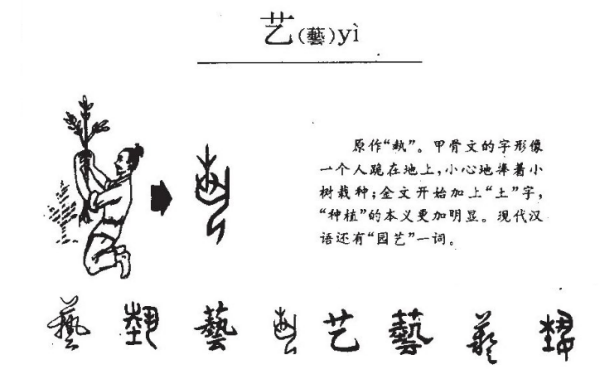 艺(藝)yì
原作“埶”。甲骨文的字形像
一个人跪在地上,小心地捧着小
树栽种;金文开始加上“土”字,
“种植”的本义更加明显。现代汉
语还有“园艺”一词。
藝 埶 藝 艺 藝